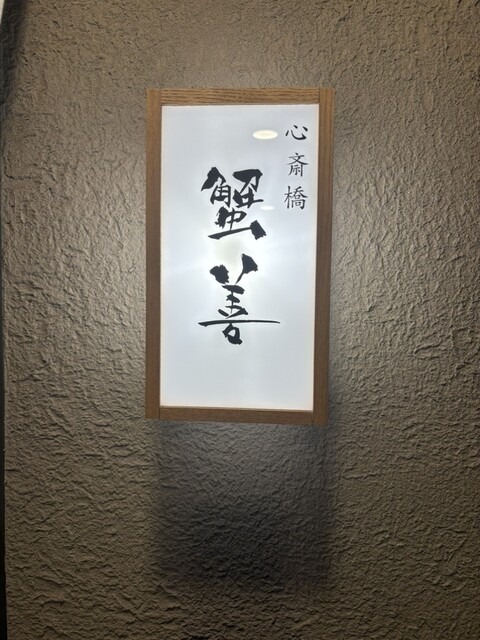 心斎橋
蟹善